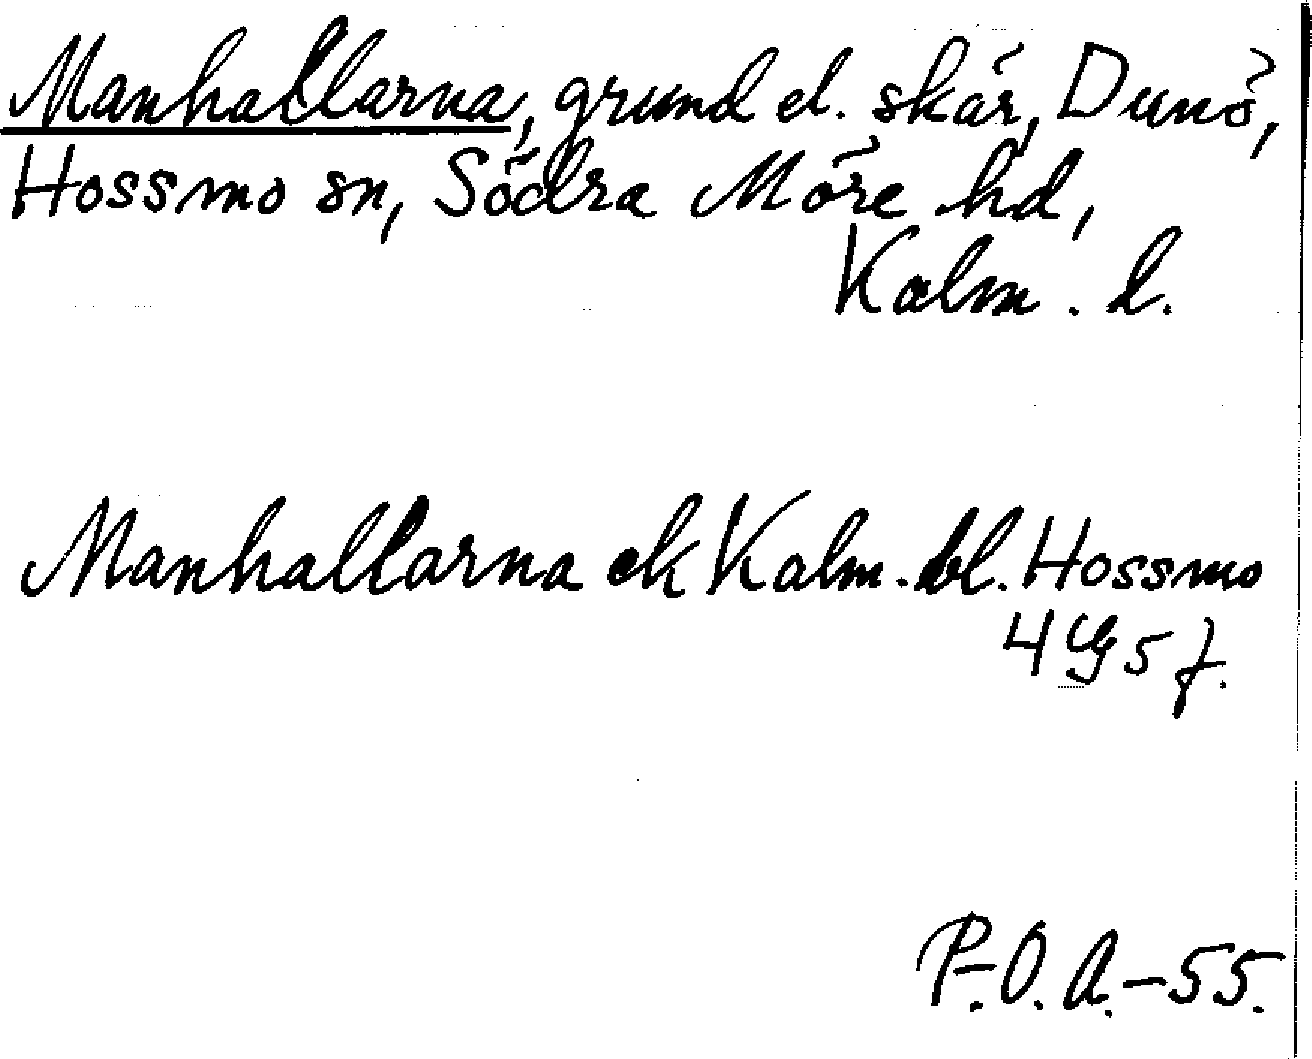 Manhallarna, grund el. skär, Dunö,
Hossmo sn, Södra Möre hd,
Kalm. l.
Manhallarna ek Kalm. bl. Hossmo
4 G 5 f.
P.-O. A.-55.